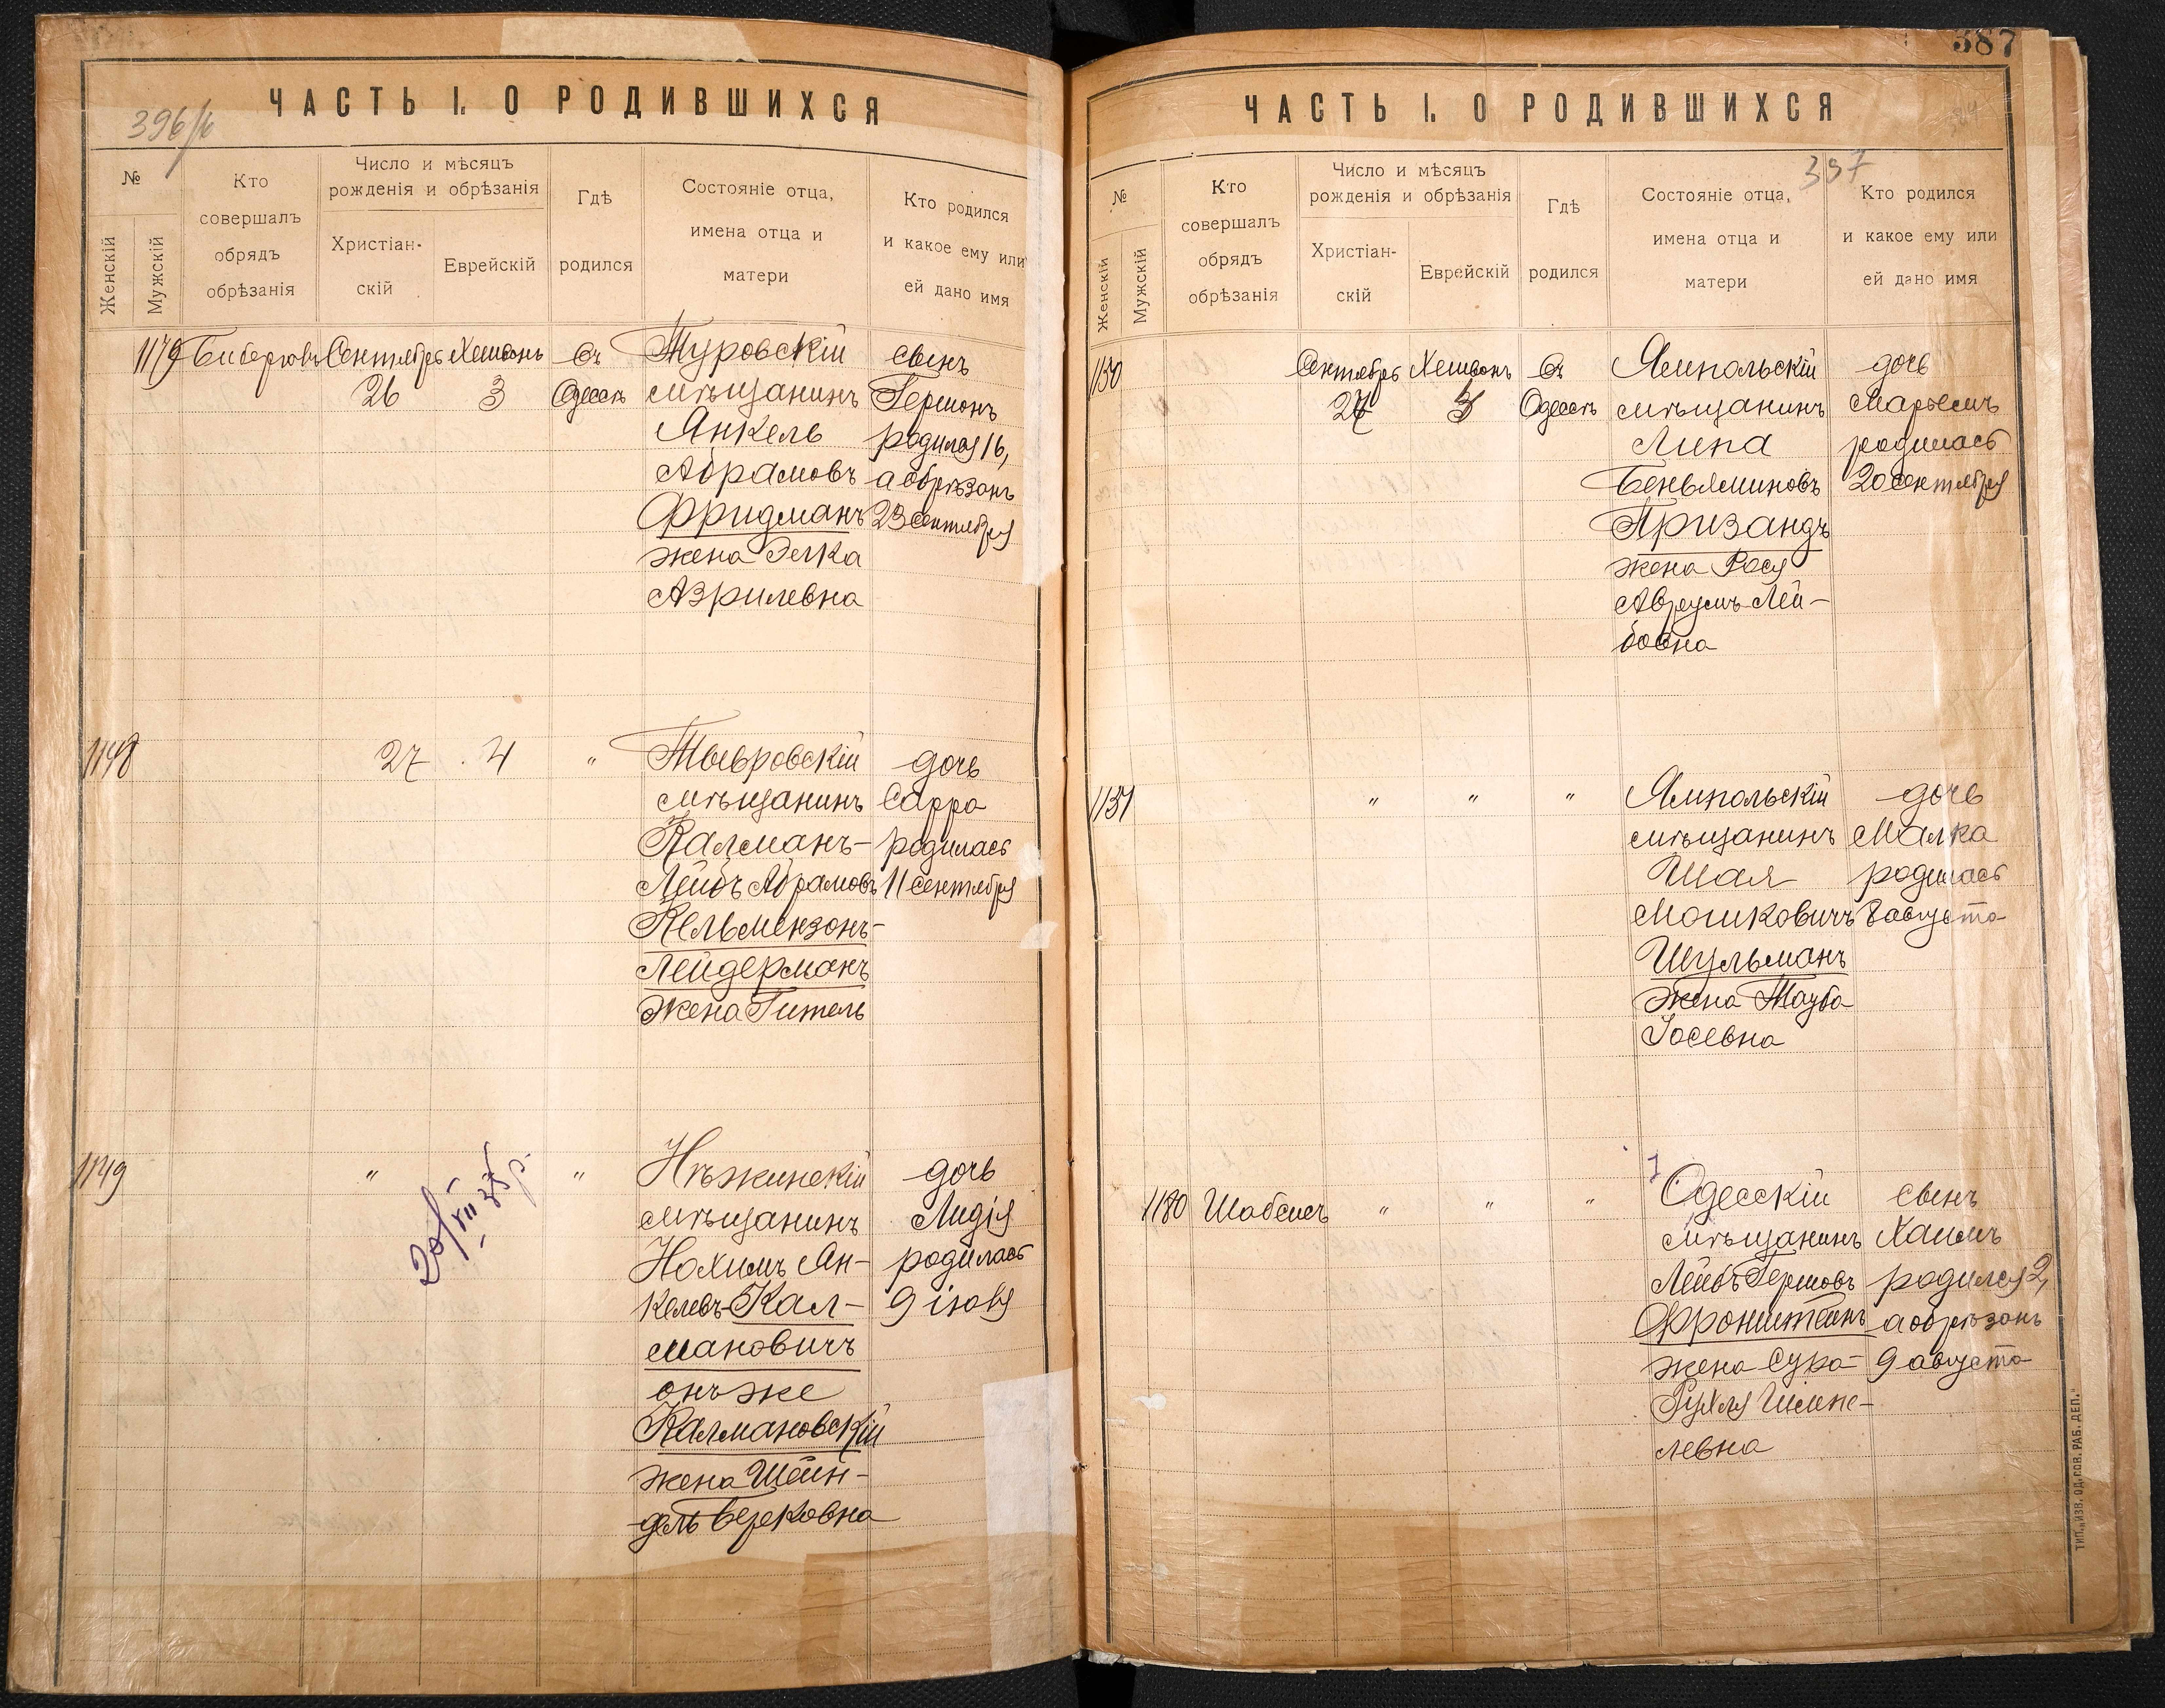 ЧАСТЬ I. О РОДИВШИХСЯ
396/
№
Женскій
Мужскій
Кто
совершалъ
обрядъ
обрѣзанія
Число и мѣсяцъ
рожденія и обрѣзанія
Христіан-
скій
Еврейскій
Гдѣ
родился
Состояніе отца,
имена отца и
матери
Кто родился
и какое ему или
ей дано имя
1179
Сентябрь
26
Хешвонъ
3
Въ
Одессѣ
Туровскій
мѣщанинъ
Янкель
Абрамовъ
Фридманъ
жена Элка
Азрилевна
сынъ
Гершонъ
родился 16,
а обрѣзанъ
23 сентября
1148
27
4
"
Тывровскій
мѣщанинъ
Калманъ-
Лейбъ Абрамовъ
Кельмензонъ-
Лейдерманъ
жена Гитель
дочь
Сарра
родилась
11 сентября
1149
"
20/VII 35 р.
"
Нѣжинскій
мѣщанинъ
Нохимъ Ян-
келевъ-Кал-
мановичъ
онъ же
Калмановскій
жена Шейн-
дель Берковна
дочь
Лидія
родилась
9 іюля
387
ЧАСТЬ I. О РОДИВШИХСЯ
397
№
Женскій
Мужскій
Кто
совершалъ
обрядъ
обрѣзанія
Число и мѣсяцъ
рожденія и обрѣзанія
Христіан-
скій
Еврейскій
Гдѣ
родился
Состояніе отца,
имена отца и
матери
Кто родился
и какое ему или
ей дано имя
1150
Сентябрь
27
Хешвонъ
Въ
Одессѣ
Ямпольскій
мѣщанинъ
Липа
Беньяминовъ
Призандъ
жена Рося
Аврумъ-Лей-
бовна
дочь
Марьемъ
родилась
20 сентября
1151
"
"
"
Ямпольскій
мѣщанинъ
Шая
Мошковичъ
Шульманъ
жена Тауба
Іосевна
дочь
Малка
родилась
8 августа
1180
Шабсисъ
"
"
"
Одесскій
мѣщанинъ
Лейбъ Гершовъ
Фронштейнъ
жена Сура-
Рухля Шмине-
левна
сынъ
Хаимъ
родился 2,
а обрѣзанъ
9 августа
ТИП. „ИЗВ. ОД. СОВ. РАБ. ДЕП."